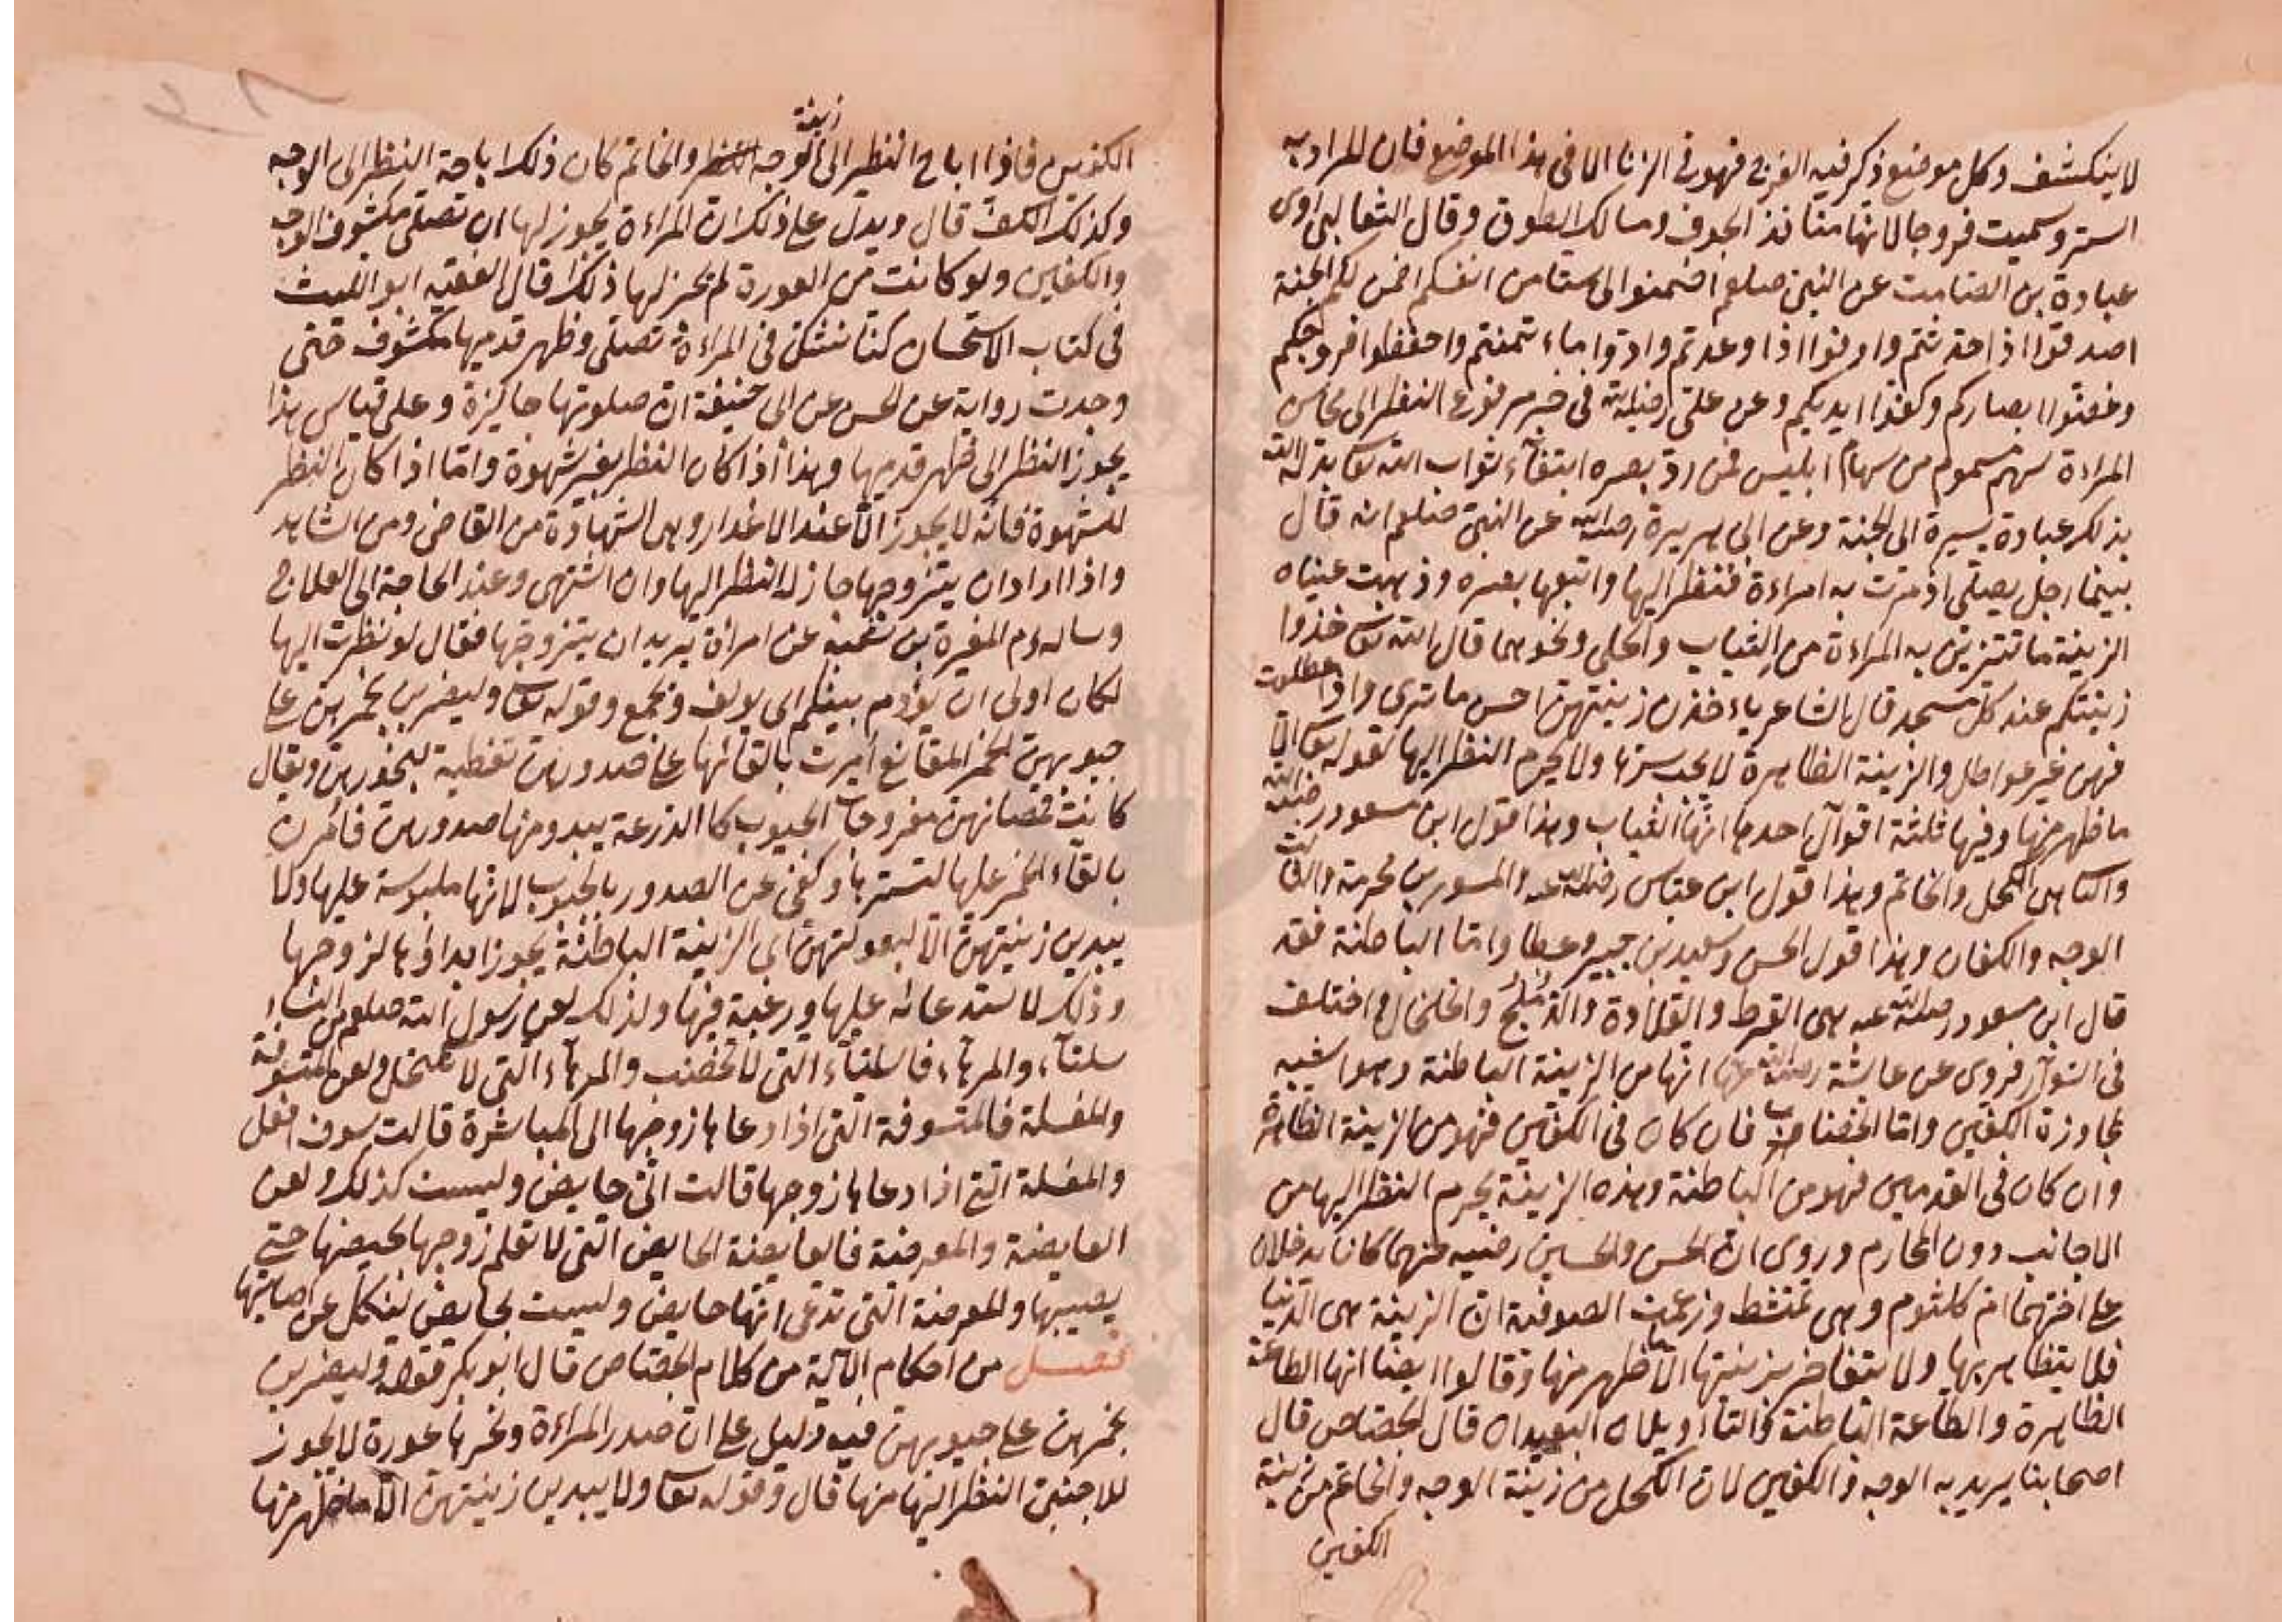 لا ينكشف وكل موضع ذكر فيه الفرج فهو في الزنا الا في هذا الموضع فان المراد به
الستر وسميت فروجا لانها منافذ الجوف ومسالك الطوق وقال الثعالبى روى
عبادة بن الصامت عن النبى صلعم اضمنوا لى ستا من انفسكم اضمن لكم الجنة
اصدقوا اذا حدثتم واوفوا اذا وعدتم وادوا ما ائتمنتم واحفظوا فروجكم
وغضوا ابصاركم وكفوا ايديكم وعن على رضى الله في خبر مرفوع النظر الى محاسن
المراءة سهم مسموم من سهام ابليس فمن رد بصره ابتغاء ثواب الله تعا بدله الله
بذلك عبادة يسيرة الى الجنة وعن ابى هريرة رضى الله عن النبى صلعم انه قال
بينما رجل يصلى اذ مرت به امراءة فنظر اليها واتبعها بصره وذهبت عيناه
الزينة ما تتزين به المراءة من الثياب والحلى ونحوهما قال الله تعا خذوا
زينتكم عند كل مسجد قال الشاعر ياءخذن زينتهن احسن ما ترى واذا عطلت
فهن غير عواطل والزينة الظاهرة لا يجب سترها ولا يحرم النظر اليها لقوله تعا الا
ما ظهر منها وفيها ثلثة اقوال احدها انها الثياب وهذا قول ابن مسعود رضى الله
والثا هى الكحل والخاتم وهذا قول ابن عباس رضى الله عنه والمسور بن مخرمة والثالث
الوجه والكفان وهذا قول الحسن وسعيد بن جبير وعطا واما الباطنة فقد
قال ابن مسعود رضى الله عنه هى القرط والقلادة والدملج والخلخال واختلف
في السوار فروى عن عائشة رضى الله عنها انها من الزينة الباطنة وهو اشبه
لمجاوزة الكفين واما الخضاب فان كان في الكفين فهو من الزينة الظاهرة
وان كان في القدمين فهو من الباطنة وهذه الزينة يحرم النظر اليها من
الاجانب دون المحارم وروى ان الحسن والحسين رضيه عنهما كانا يدخلان
على اختهما ام كلثوم وهى تمتشط وزعمت الصوفية ان الزينة هى الدنيا
فلا يتظاهر بها ولا يتفاخر بزينتها الا ما ظهر منها وقالوا ايضا انها الطاعة
الظاهرة والطاعة الباطنة والتاءويلان البعيدان قال الجصاص قال
اصحابنا يريد به الوجه والكفين لان الكحل من زينة الوجه والخاتم من زينة
الكفين
الكفين فاذا اباح النظر الى زينة الوجه والخاتم كان ذلك اباحة النظر الى الوجه
وكذلك الكف قال ويدل على ذلك ان المراءة يجوز لها ان تصلى مكشوف الوجه
والكفين ولو كانت من العورة لم يجز لها ذلك قال الفقيه ابو الليث
في كتاب الاستحسان كنا نشك في المراءة تصلى وظهر قدميها مكشوف حتى
وجدت رواية عن الحسن عن ابى حنيفة ان صلوتها جائزة وعلى قياس هذا
يجوز النظر الى ظهر قدميها وهذا اذا كان النظر بغير شهوة واما اذا كان النظر
للشهوة فانه لا يجوز الا عند الاعذار وهى الشهادة من القاضى ومن الشاهد
واذا اراد ان يتزوجها جاز له النظر اليها وان اشتهى وعند الحاجة الى العلاج
وساله وم المغيرة بن شعبة عن امراة يريد ان يتزوجها فقال لو نظرت اليها
لكان اولى ان يؤدم بينكم اى يولف ويجمع وقوله تعا وليضربن بخمرهن على
جيوبهن الخمر المقانع امرت بالقائها على صدورهن تغطية لنحورهن ويقال
كانت قمصانهن مفروجات الجيوب كا الدرعة يبدو منها صدورهن فامرن
بالقاء الخمر عليها لتسترها وكنى عن الصدور بالجيوب لانها ملبوسة عليها ولا
يبدين زينتهن الا لبعولتهن اى الزينة الباطنة يجوز ابداؤها لزوجها
وذلك لاستدعائه عليها ورغبة فيها ولذلك لعن رسول الله صلعم من النساء
سلتاء والمرهاء فالسلتاء التى لا تخضب والمرهاء التى لا تكتحل ولعن المتسوفة
والمفسلة فالمتسوفة التى اذا دعاها زوجها الى المباشرة قالت سوف افعل
والمفسلة التى اذا دعاها زوجها قالت انى حايض وليست كذلك ولعن
الغايصة والمغوصة فالغايصة الحايض التى لا تعلم زوجها بحيضها حتى
يصيبها والمغوصة التى تدعى انها حايض وليست بحايض لينكل عن اصابتها
فصل من احكام الاية من كلام الجصاص قال ابو بكر قوله وليضربن
بخمرهن على جيوبهن فيه دليل على ان صدر المراءة ونحرها عورة لا يجوز
للاجنبى النظر اليها منها قال وقوله تعا ولا يبدين زينتهن الا ما ظهر منها